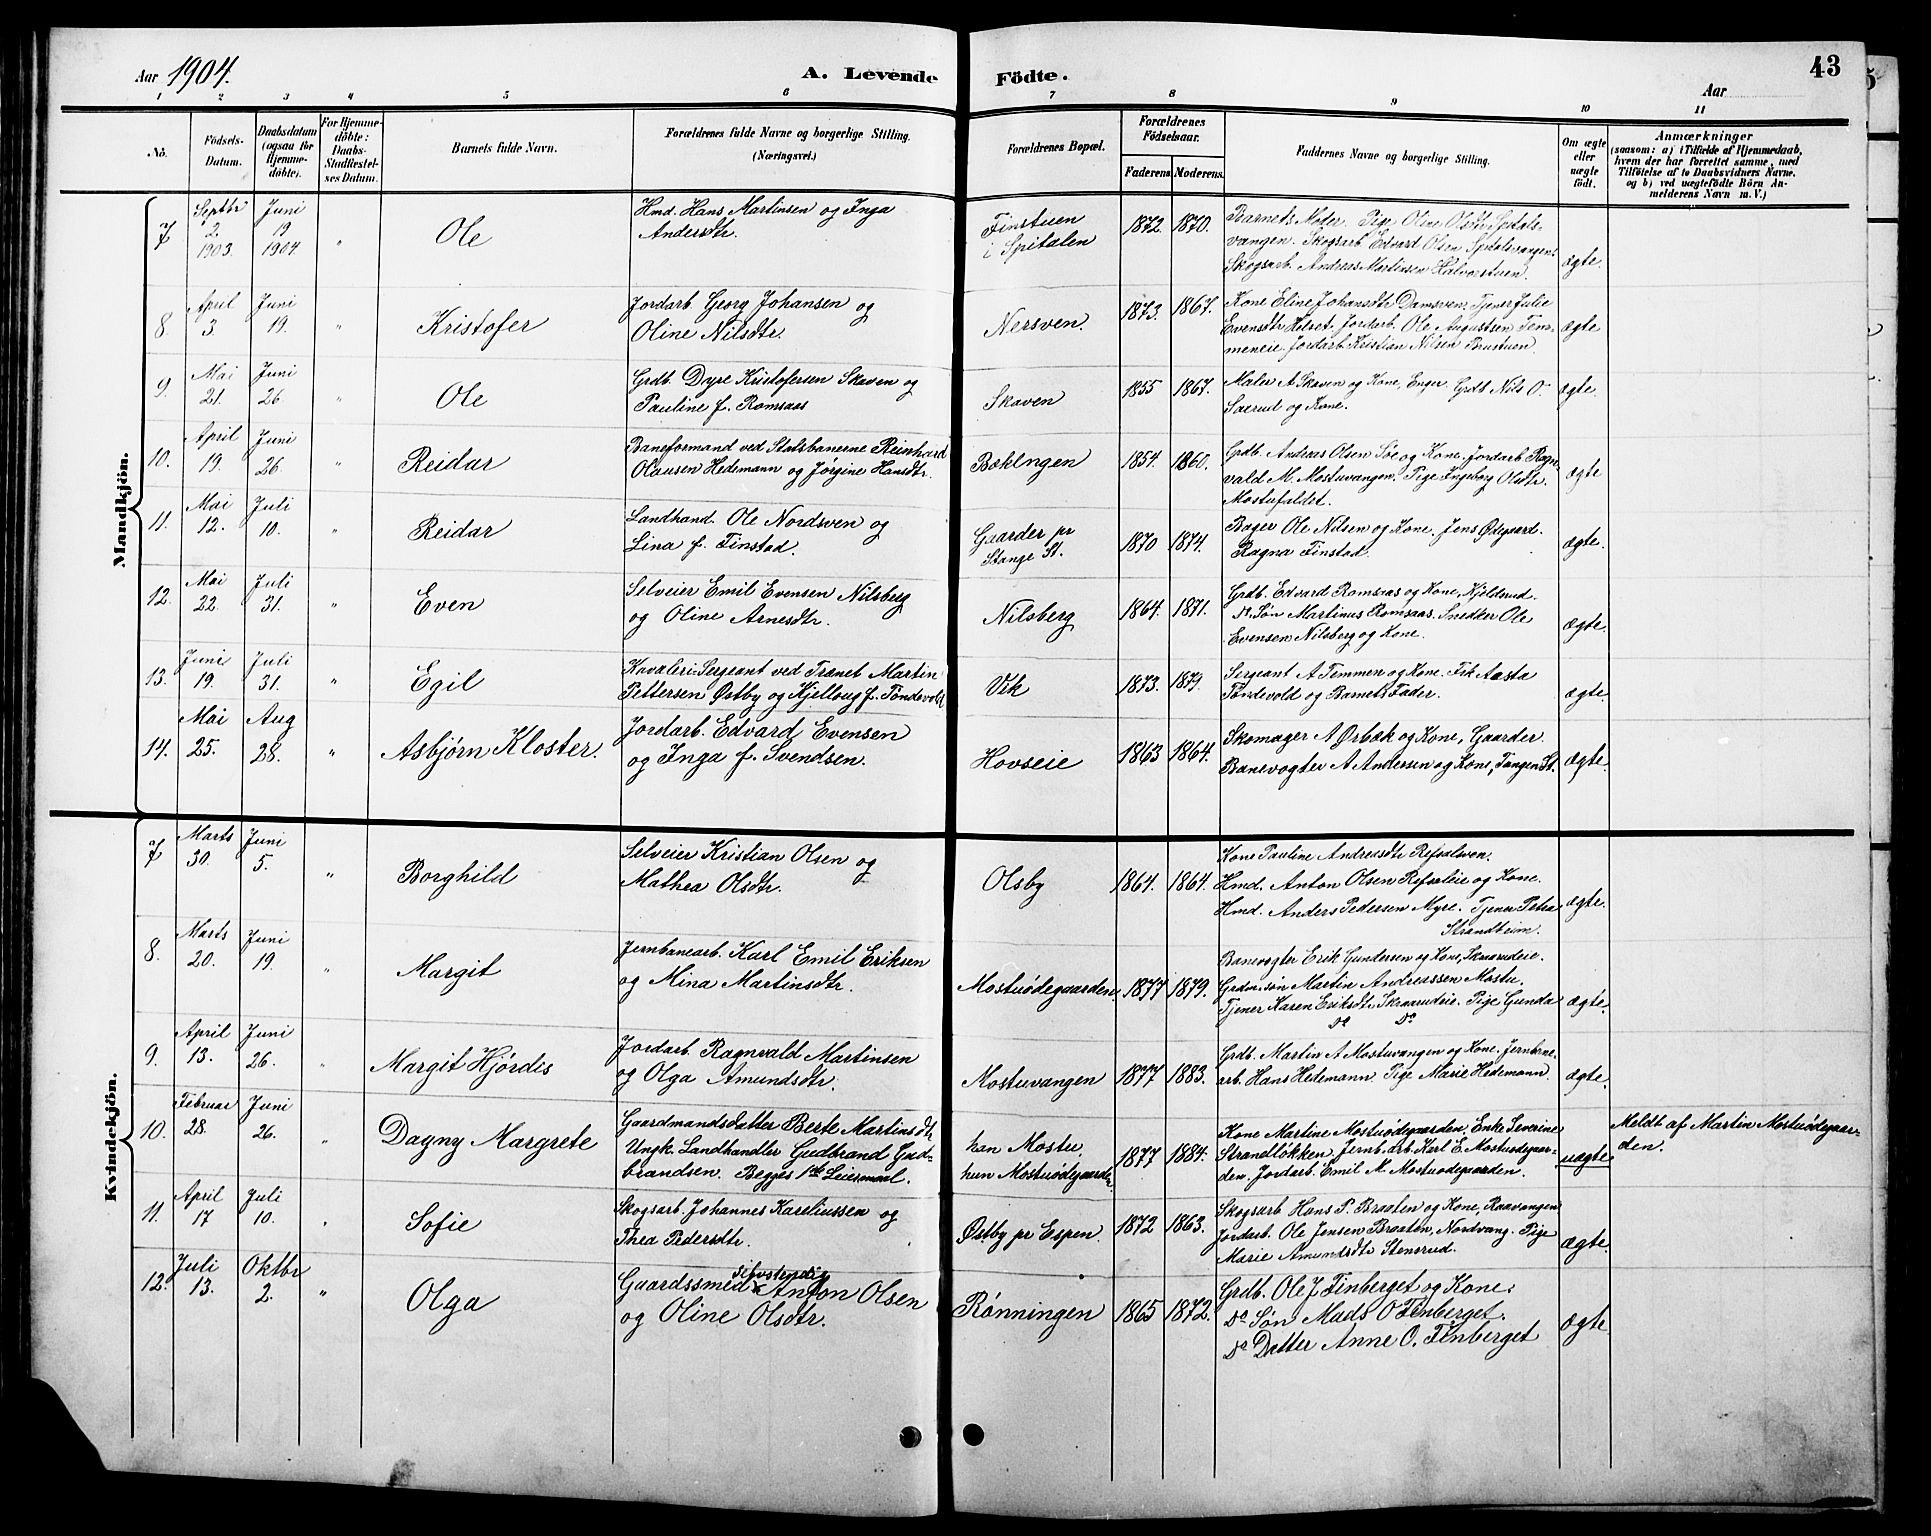 Aar 1904.
A. Levende Födte.
43
Aar
1 2 3 4 5 6 7 8 9 10 11
No.
Födsels-
Datum.
Daabsdatum
(ogsaa for
Hjemme-
döbte).
For Hjemme-
döbte:
Daabs-
Stadfæstel-
ses Datum.
Barnets fulde Navn.
Forældrenes fulde Navne og borgerlige Stilling.
(Næringsvei.)
Forældrenes Bopæl.
Forældrenes
Födselsaar.
Faderens. Moderens.
Faddernes Navne og borgerlige Stilling.
Om ægte
eller
uægte
födt.
Anmærkninger
(saasom: a) i Tilfælde af Hjemmedaab,
hvem der har forrettet samme, med
Tilföielse af to Daabsvidners Navne.
og b) ved uægtefödte Börn An-
melderens Navn m. V.)
Mandkjön.
7
Septbr
2.
1903.
Juni
19
1904.
"
Ole
Hmd. Hans Martinsen og Inga
Andersdtr.
Finstuen
i Spitalen
1872. 1870.
Barnets Moder. Pige Oline Olsdtr Spitals-
vangen. Skogsarb Edvard Olsen Spitalsvangen.
Skogsarb. Andreas Martinsen Halvorstuen.
ægte.
8
April
3.
Juni
19.
"
Kristofer
Jordarb Georg Johansen og
Oline Nilsdtr.
Nersven.
1873. 1867.
Kone Eline Johansdtr Damsven. Tjener Julie
Evensdtr Helset. Jordarb. Ole Augustsen Tem-
meneie. Jordarb Kristian Nilsen Brustuen.
ægte
9.
Mai
21.
Juni
26.
"
Ole
Grdb. Dyre Kristofersen Skaven og
Pauline f. Romsaas
Skaven
1855 1867.
Maler A Skaven og Kone, Enger. Grdb Nils O.
Saerud og Kone.
ægte.
10.
April
19.
Juni
26.
"
Reidar
Baneformand ved Statsbanerne Reinhard
Olausen Hedemann og Jørgine Hansdtr.
Bæklngen
1854. 1860.
Grdb. Andreas Olsen Søe og Kone. Jordarb Ragn-
vald M. Mostuvangen. Pige Ingeborg Olsdtr.
Mostufaldet.
ægte
11.
Mai
12.
Juli
10.
"
Reidar
Landhand. Ole Nordsven og
Lina f. Finstad.
Gaarder pr
Stange St.
1870 1874.
Bager Ole Nilsen og Kone. Jens Ødegaard.
Ragna Finstad.
ægte.
12.
Mai
22.
Juli
31.
"
Even
Selveier Emil Evensen Nilsberg
og Oline Arnesdtr.
Nilsberg
1864. 1871.
Grdb. Edvard Romsaas og Kone, Kjelsrud.
Do. Søn Martinus Romsaas. Snedker Ole
Evensen Nilsberg og Kone.
ægte.
13.
Juni
19.
Juli
31.
"
Egil
Kavaleri-Sergeant ved Trænet Martin
Pettersen Østby og Kjellaug f. Tøndevold
Vik
1873. 1879.
Sergeant A Temmen og Kone. Frk Aasta
Tøndevold og Barnets Fader.
ægte.
14.
Mai
25.
Aug
28.
"
Asbjørn Kloster.
Jordarb. Edvard Evensen
og Inga f. Svendsen.
Hovseie
1863 1864.
Skomager A Ørbæk og Kone, Gaarder
Banevogter A Andersen og Kone, Tangen St.
ægte.
Kvindekjön.
7
Marts
30.
Juni
5.
"
Borghild
Selveier Kristian Olsen og
Mathea Olsdtr.
Olsby
1864. 1864.
Kone Pauline Andreasdtr Refsalsven.
Hmd. Anton Olsen Refsaleie og Kone.
Hmd. Anders Pedersen Myre. Tjener Petra
Strandheim.
ægte.
8.
Marts
20.
Juni
19.
"
Margit
Jernbanearb. Karl Emil Eriksen
og Mina Martinsdtr.
Mostuødegaarden
1877 1879.
Banevogter Erik Gundersen og Kone, Skaarudeie.
Grdm.søn Martin Andreassen Mostu.
Tjener Karen Eriksdtr, Skaarudeie. Pige Gunda
Do Do
ægte.
9.
April
13.
Juni
26.
"
Margit Hjørdis
Jordarb. Ragnvald Martinsen
og Olga Amundsdtr.
Mostuvangen
1877 1883.
Grdb. Martin A Mostuvangen og Kone. Jernbne-
arb. Hans Hedemann. Pige Marie Hedemann.
ægte.
10.
Februar
28.
Juni
26.
"
Dagny Margrete
Gaardmandsdatter Berte Martinsdtr
Ungk. Landhandler Gudbrand Gud-
brandsen. Begges 1ste Leiermaal.
han Mostu,
hun Mostuødegaarden
1877 1884.
Kone Martine Mostuødegaarden. Enke Severine
Strandløkken. Jernb. arb. Karl E. Mostuødegaar-
den. Jordarb. Emil M. Mostuødegaarden.
uægte
Meldt af Martin Mostuødegaar-
den.
11.
April
17
Juli
10.
"
Sofie
Skogsarb. Johannes Kareliussen og
Thea Pedersdtr.
Østby pr Espen.
1872 1863.
Skogsarb Hans P. Braaten og Kone, Raavangen
Jordarb. Ole Jensen Braaten, Nordvang. Pige
Marie Amundsdtr Stensrud.
ægte.
12.
Juli
13.
Oktbr
2.
"
Olga
selvstendig
Gaardssmed Anton Olsen
og Oline Olsdtr.
Rønningen
1865 1872.
Grdb. Ole J Finberget og Kone.
Do Søn Mads O Finberget.
Do Datter Anne O. Finberget
ægte